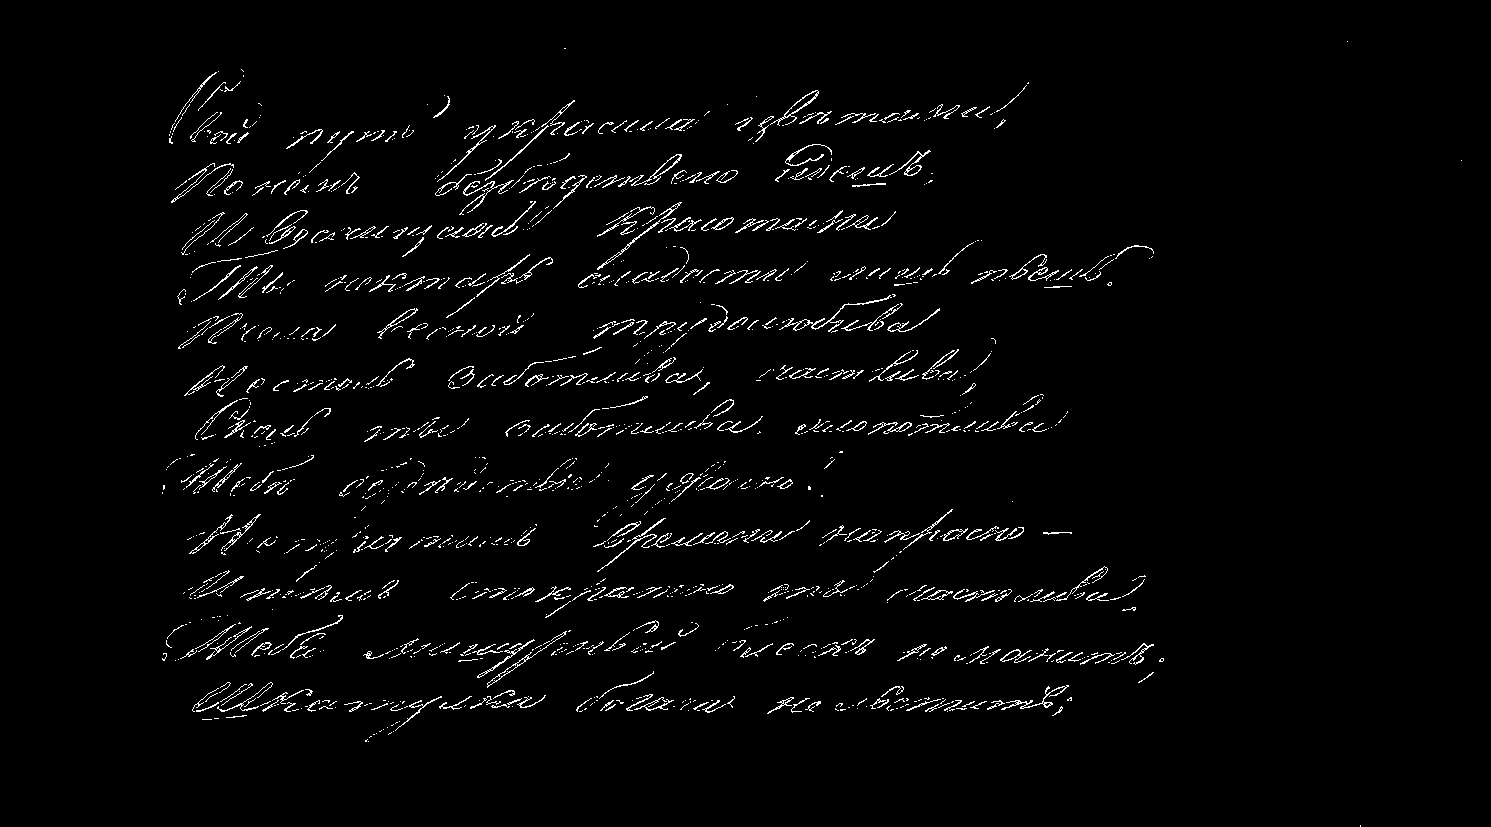 Свой путь украсила цвѣтами,
По немъ безбѣдственно идешь,
И восхищаясь красотами
Ты нектаръ сладости лишь пьешь.
Пчела весной трудолюбива
Не столь заботлива, счастлива,
Сколь ты заботлива. хлопотлива
Тебѣ бездѣйствіе ужасно!
Не тратишь времени напрасно —
И тѣмъ стократно ты счастлива.
Тебя мишурный блескъ не манитъ,
Шкатулка богача не льститъ;